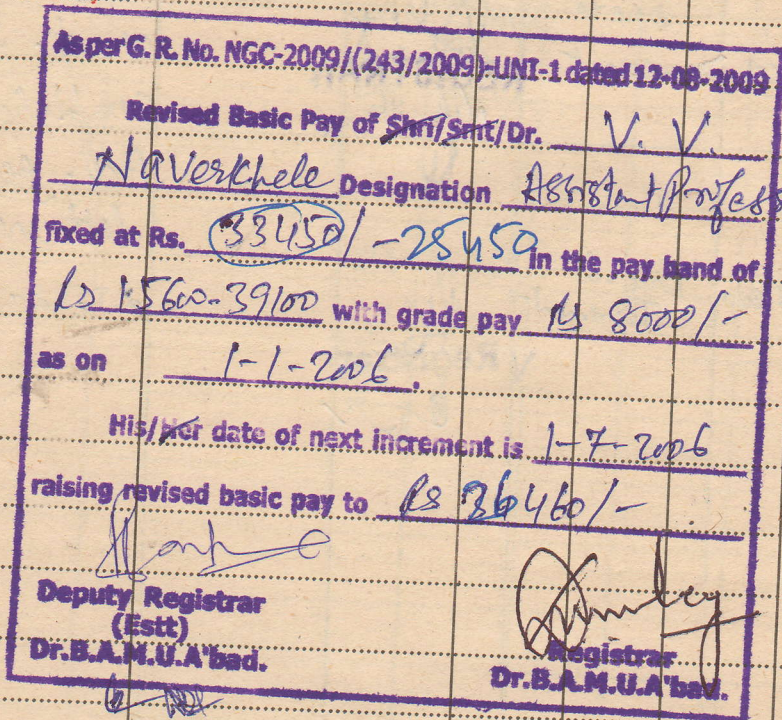 As per G. R. No. NGC-2009/(243/2009)-UNI-1 dated 12-08-2009
Revised Basic Pay of Shri/Smt/Dr. V. V.
Naverkhele Designation Assistant Profess
fixed at Rs. 33450/- 25450 in the pay band of
Rs 15600-39100 with grade pay Rs 8000/-
as on 1-1-2006.
His/Her date of next increment is 1-7-2006
raising revised basic pay to Rs 36460/-
Deputy Registrar
(Estt)
Dr.B.A.M.U.A'bad.
Registrar
Dr.B.A.M.U.A'bad.